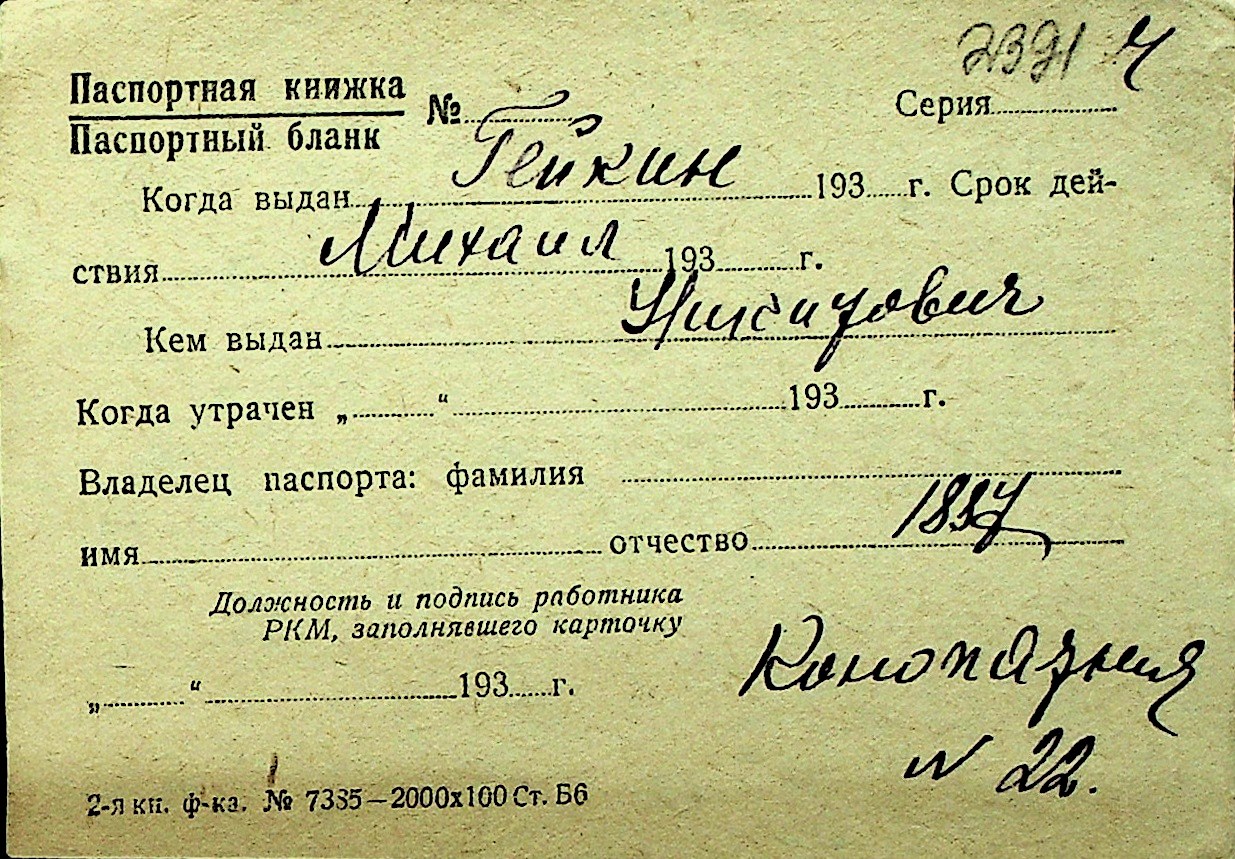 2321 Ч
Паспортная книжка
Паспортный бланк
№ Серия
Гейкин
Когда выдан 193 г. Срок дей-
Михаил
ствия 193 г.
Никитович
Кем выдан
Когда утрачен „ “ 193 г.
Владелец паспорта: фамилия
1897
имя отчество
Должность и подпись работника
РКМ, заполнявшего карточку
Конопатная
„ “ 193 г.
N 22.
2-я кн. ф-ка. № 7385—2000х100 Ст. Б6